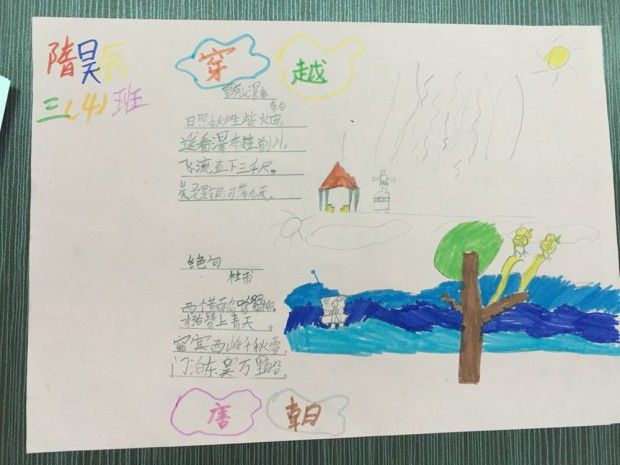 隋昊辰
三(4)班
穿越
李白
日照生紫烟
遥看瀑布挂前川。
飞流直下三千尺。
疑是银河落九天。
绝句
杜甫
两个黄
上青天。
窗含西岭千秋雪,
门泊东吴万里船。
唐朝